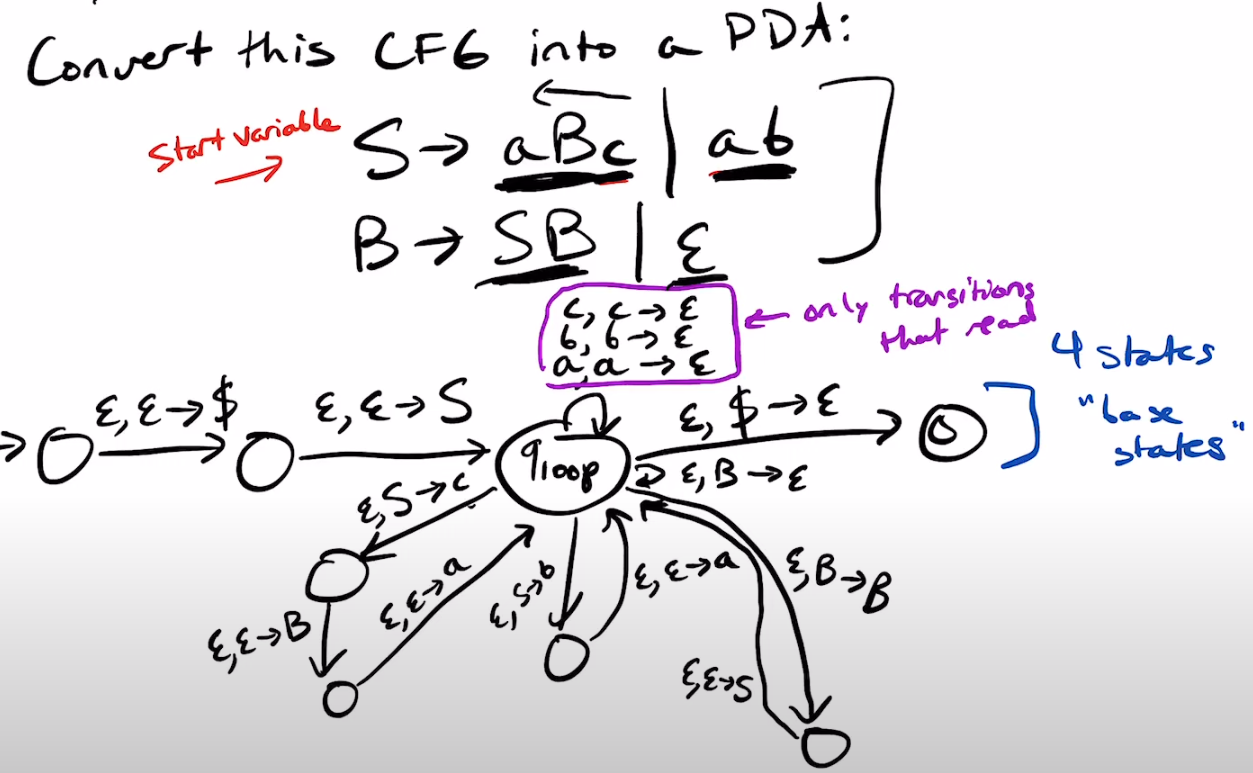 Convert this CFG into a PDA:
start variable
S → aBc | ab
B → SB | ε
c, c → ε
b, b → ε
a, a → ε
only transitions
that read
4 states
"base
states"
ε, ε → $
ε, ε → S
ε, $ → ε
qloop
ε, B → ε
ε, S → c
ε, ε → B
ε, ε → a
ε, S → b
ε, ε → a
ε, B → B
ε, ε → S